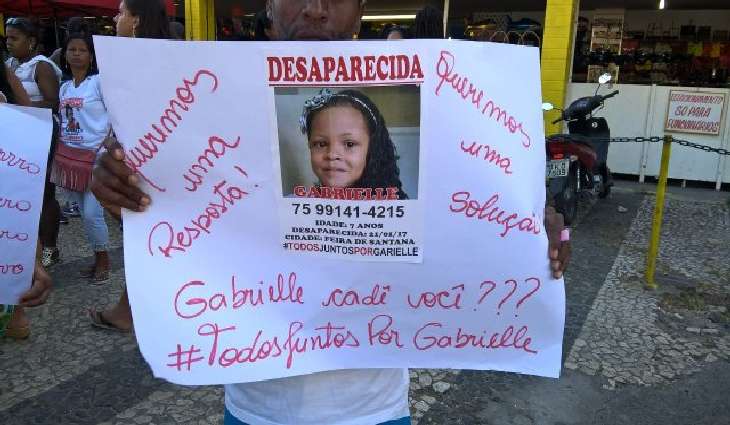 Queremos
uma
Resposta!
DESAPARECIDA
GABRIELLE
75 99141-4215
IDADE: 7 ANOS
DESAPARECIDA: 21/01/17
CIDADE: FEIRA DE SANTANA
#TODOSJUNTOSPORGARIELLE
Queremos
uma
Solução!
Gabrielle cadê você???
#TodosJuntos Por Gabrielle
ESTACIONAMENTO
SO PARA
FUNCIONARIOS